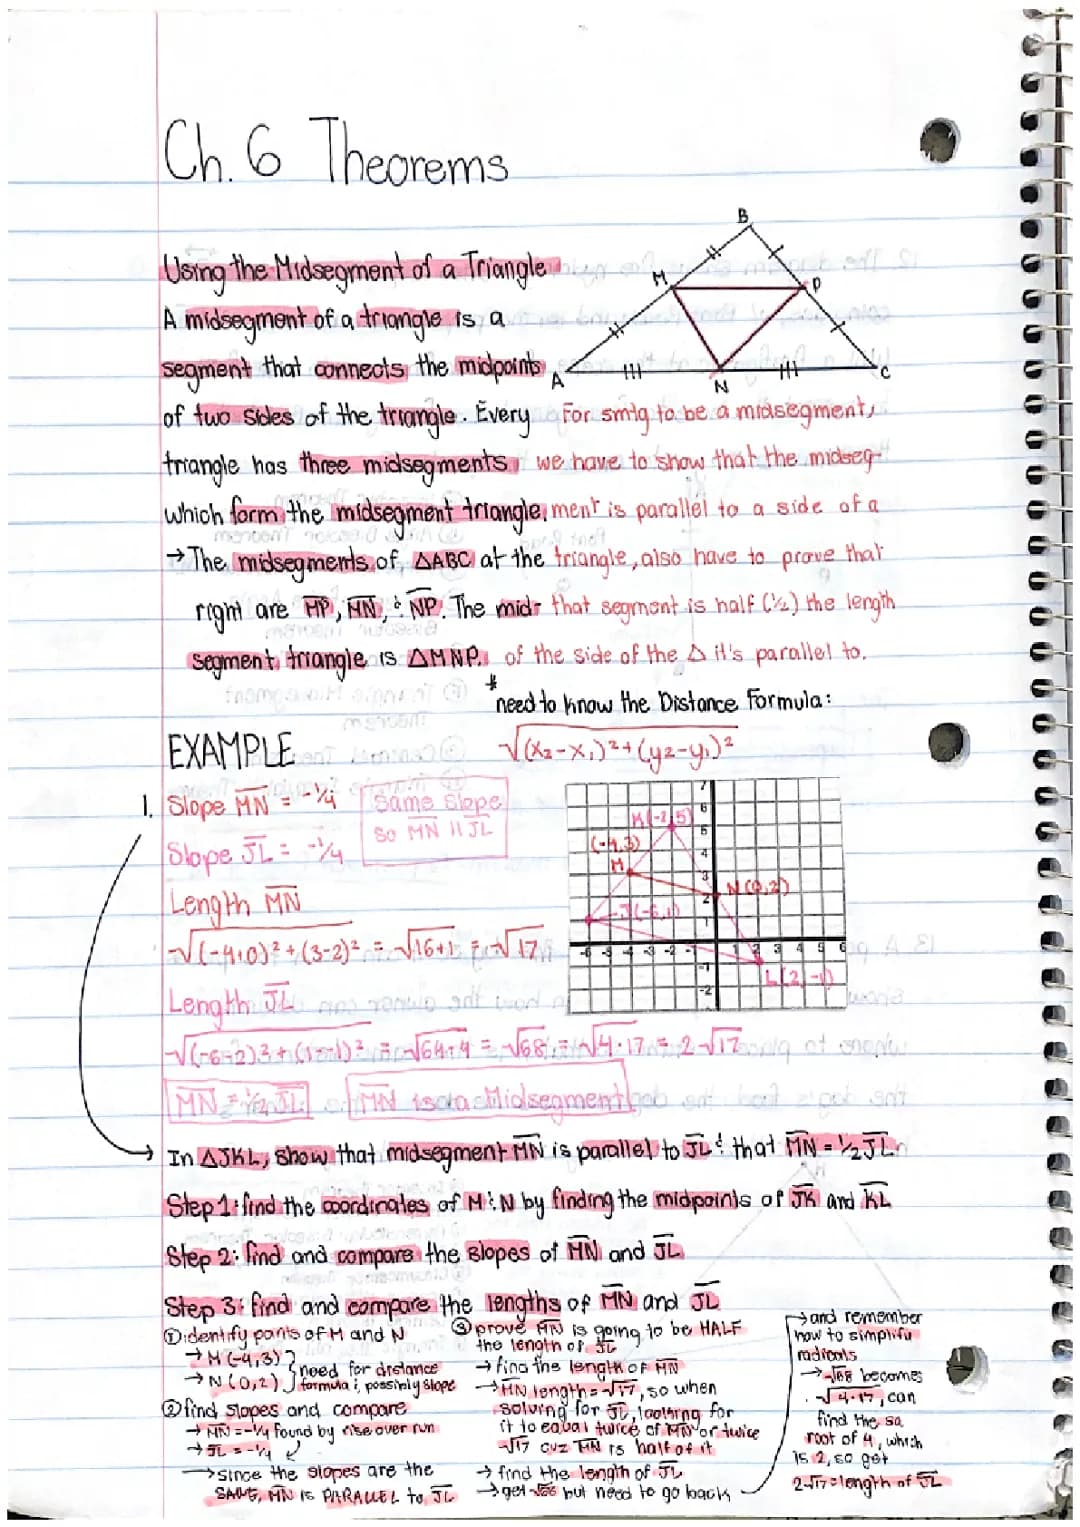 Ch. 6 Theorems
B
M
P
A
N
C
Using the Midsegment of a Triangle
A midsegment of a triangle is a
segment that connects the midpoints
of two sides of the triangle. Every
triangle has three midsegments,
which form the midsegment triangle.
→The midsegments of △ABC at the
right are MP, MN, & NP. The mid-
segment triangle is △MNP.
For smtg to be a midsegment,
we have to show that the midseg-
ment is parallel to a side of a
triangle, also have to prove that
that segment is half (½) the length
of the side of the △ it's parallel to.
*need to know the Distance Formula:
√(x₂-x₁)²+(y₂-y₁)²
EXAMPLE
1. Slope MN = -¼
Slope JL = -¼
Same Slope
so MN || JL
Length MN
√(-4+0)²+(3-2)² = √16+1 = √17
Length JL
√(-6-2)2+(1--1)² = √64+4 = √68 = √4·17 = 2√17
MN = ½ JL
MN is a Midsegment
K(-2,5)
(-4,3)
M
N(0,2)
J(-6,1)
L(2,-1)
7
6
5
4
3
2
1
-6 -5 -4 -3 -2 -1 1 2 3 4 5 6
-1
-2
In △JKL, show that midsegment MN is parallel to JL & that MN = ½JL
Step 1: find the coordinates of M & N by finding the midpoints of JK and KL
Step 2: find and compare the slopes of MN and JL
Step 3: find and compare the lengths of MN and JL
① identify points of M and N
→ M(-4,3)
→ N(0,2)
need for distance
formula & possibly slope
② find slopes and compare
→ MN = -¼ found by rise over run
→ JL = -¼
→ since the slopes are the
SAME, MN is PARALLEL to JL
③ prove MN is going to be HALF
the length of JL
→ find the length of MN
→ MN length = √17, so when
solving for JL, looking for
it to equal twice of MN or twice
√17 cuz MN is half of it
→ find the length of JL
→ get √68 but need to go back
→ and remember
how to simplify
radicals
→ √68 becomes
√4·17, can
find the sq
root of 4, which
is 2, so get
2√17 = length of JL